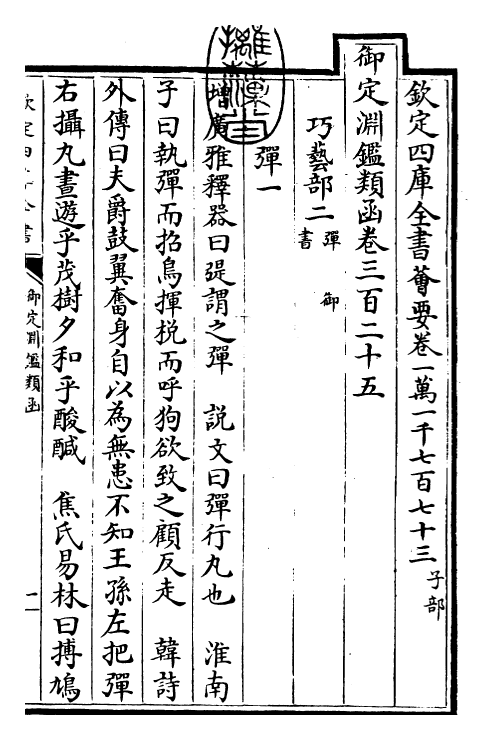 欽定四庫全書薈要卷一萬一千七百七十三 子部
御定淵鑑類函卷三百二十五
巧藝部二 彈 御
書
彈一
增廣雅釋器曰㢮謂之彈 說文曰彈行丸也 淮南
子曰執彈而招鳥揮梲而呼狗欲致之顧反走 韓詩
外傳曰夫爵鼓翼奮身自以為無患不知王孫左把彈
右攝丸晝遊乎茂樹夕和乎酸醎 焦氏易林曰搏鳩
欽定四庫全書
御定淵鑑類函
一